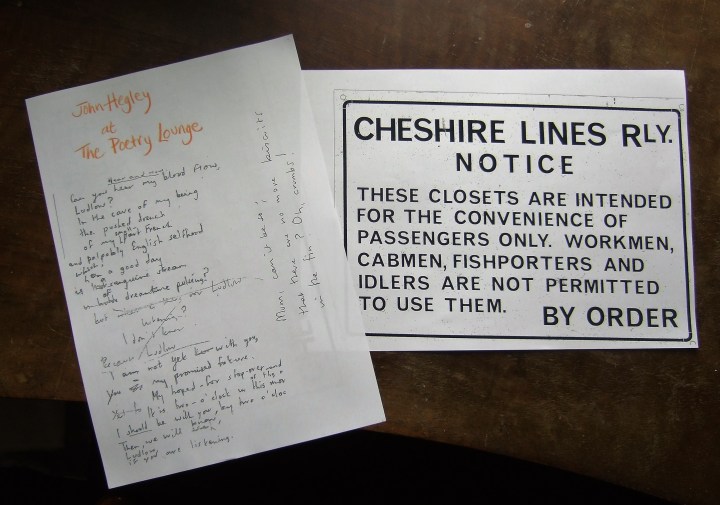 John Hegley
at
The Poetry Lounge
Can you hear my blood flow,
Ludlow?
In the cave of my being
the pocked drench
of my part French
and palpably English selfhood
which,
on a good day
is
but
I
Ludlow
I am not yet with you,
you my promised future.
My hoped-for stop-over and
It is two-o'clock in this
I should be with you, by two o'cloc
Then, we will know,
Ludlow
if you are listening.
Mum, can it be so;
that there are no more biscuits
in the tin? Oh, crumbs!
CHESHIRE LINES RLY.
NOTICE
THESE CLOSETS ARE INTENDED
FOR THE CONVENIENCE OF
PASSENGERS ONLY. WORKMEN,
CABMEN, FISHPORTERS AND
IDLERS ARE NOT PERMITTED
TO USE THEM.
BY ORDER